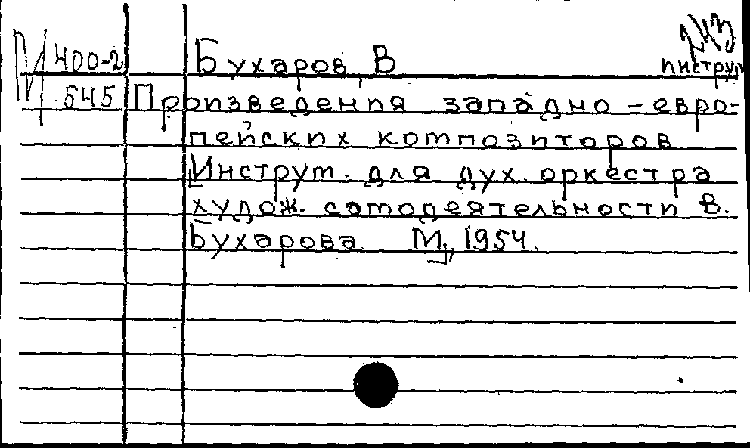 М 400-2 Бухаров, В
инструм
545 Произведения западно-евро-
пейских композиторов
Инструм. для дух. оркестра
худож. самодеятельности В.
Бухарова. М., 1954.